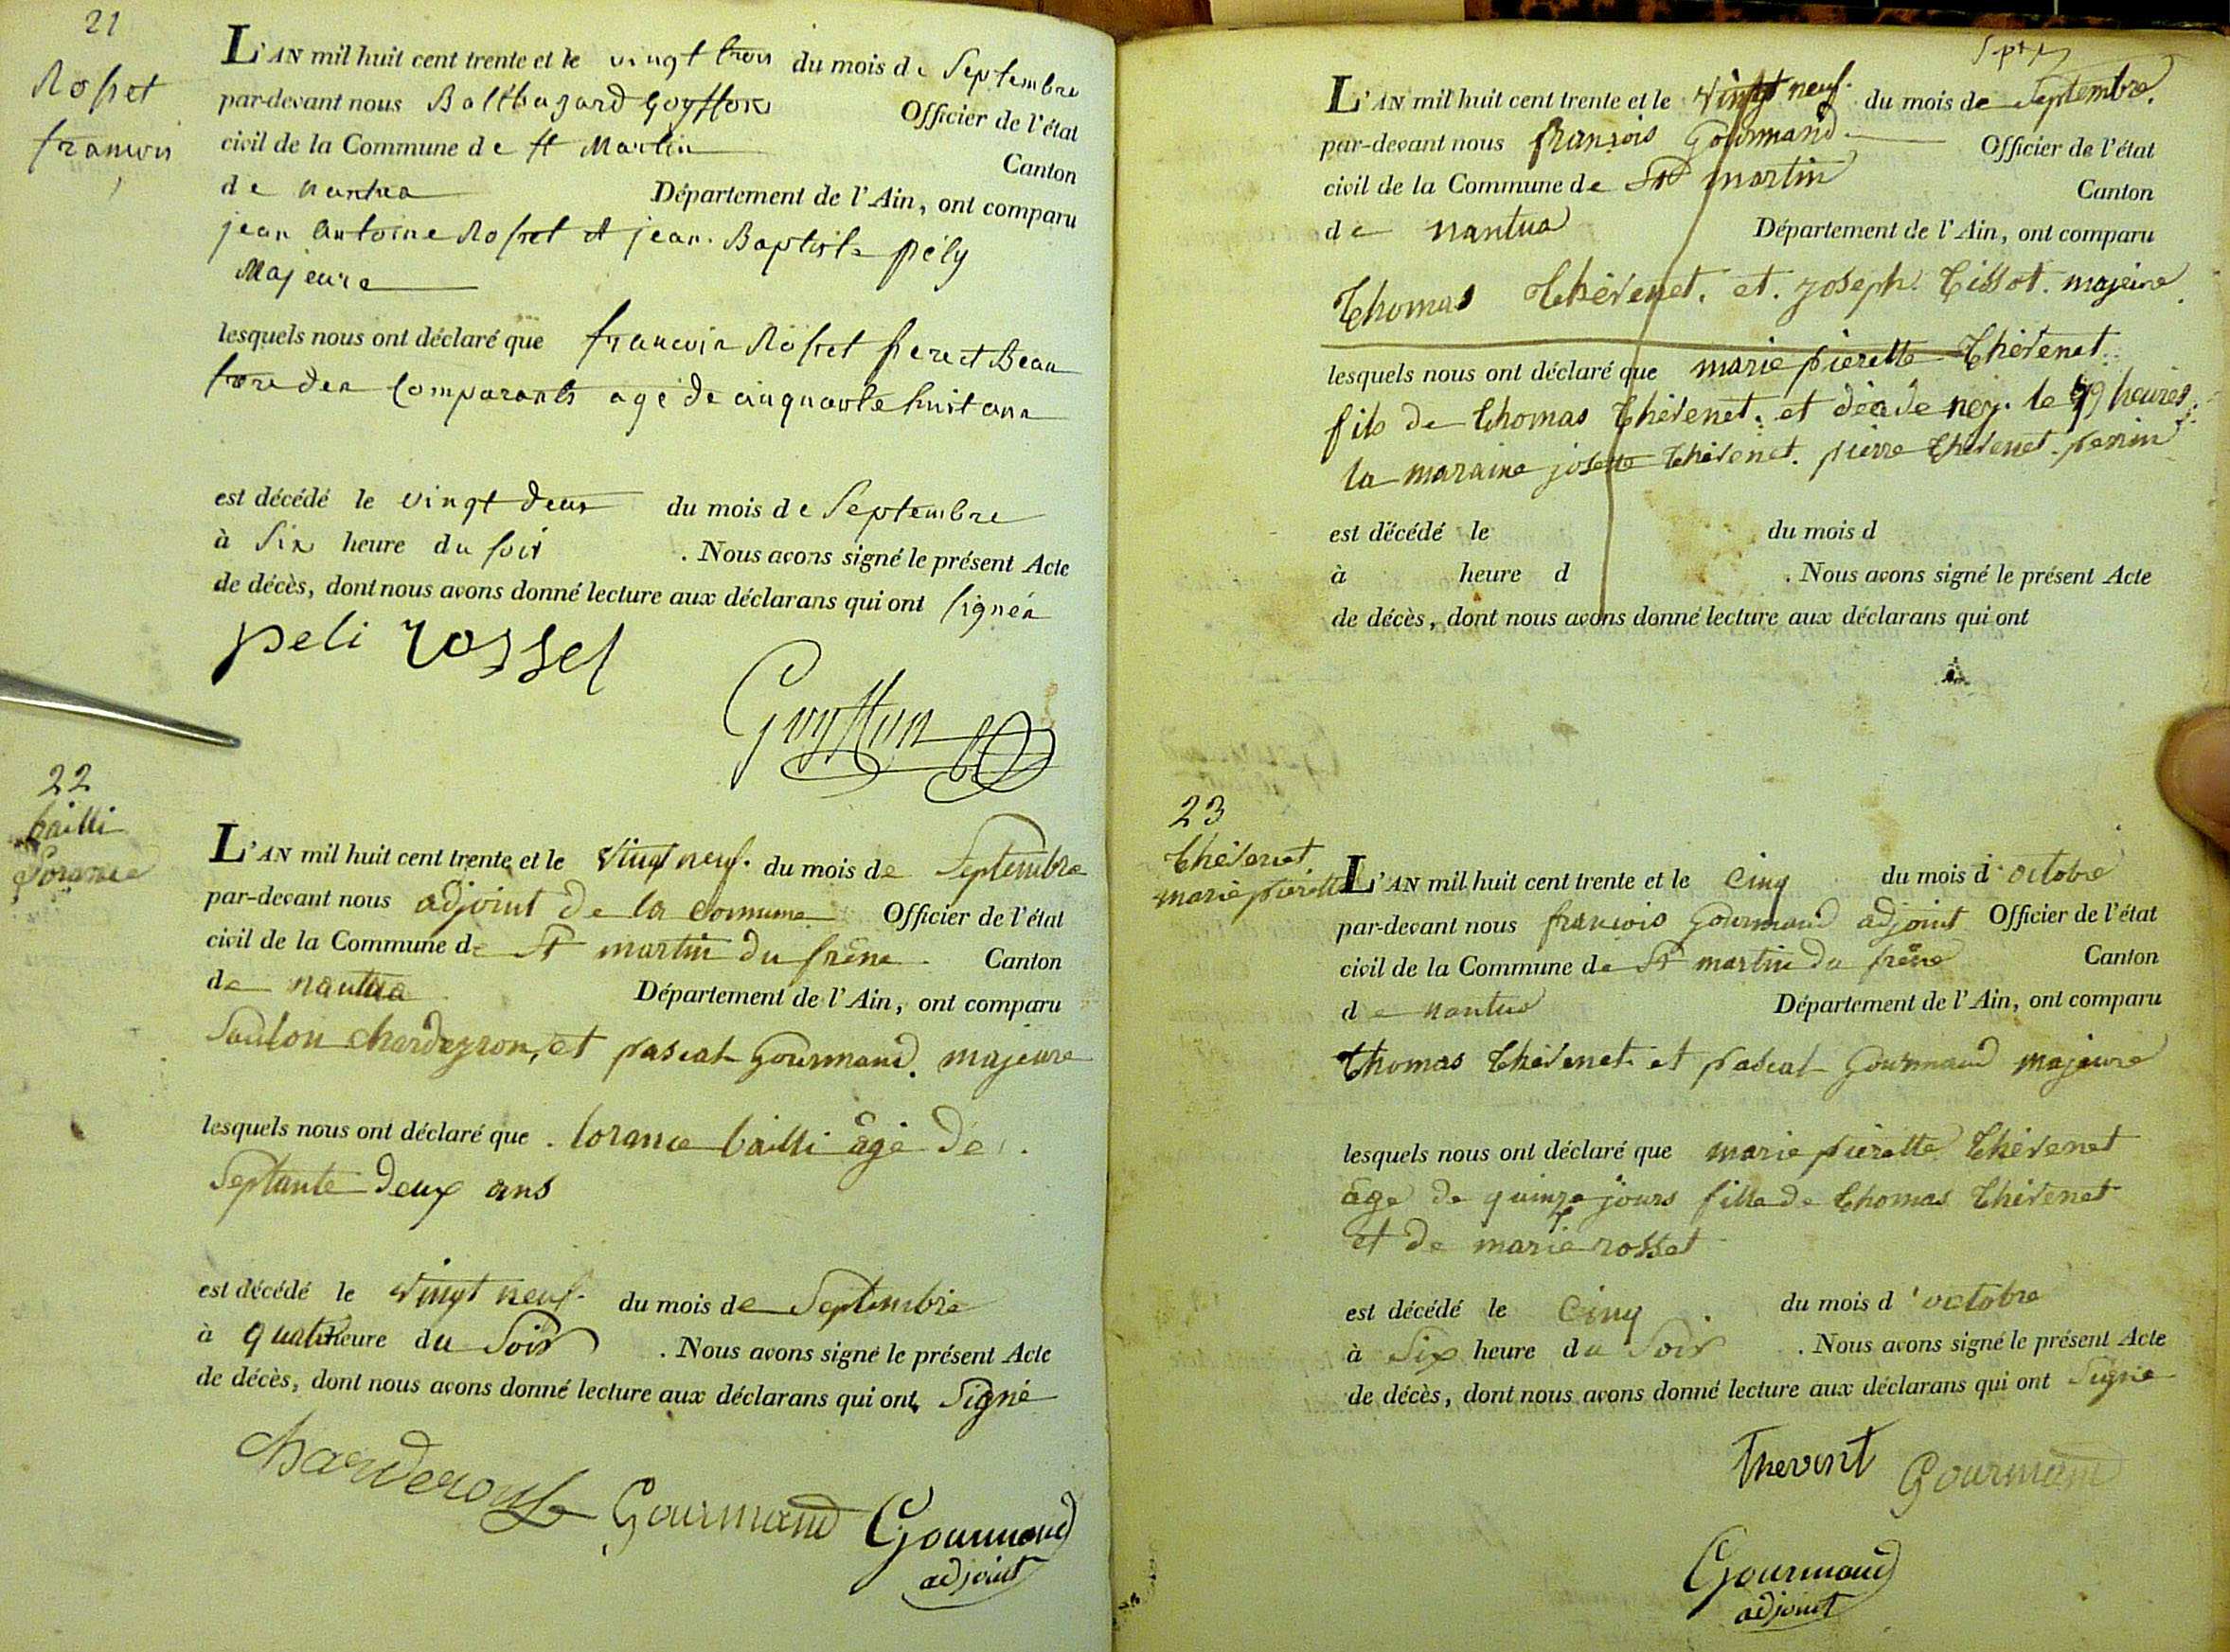 21
Rosset
francois
L'AN mil huit cent trente et le vingt trois du mois de Septembre
par-devant nous Balthazard Goyffon Officier de l'état
civil de la Commune de St Martin Canton
de nantua Département de l'Ain, ont comparu
jean antoine Rosset et jean Baptiste pély
Majeure
lesquels nous ont déclaré que francois Rosset frere et Beau
frere des Comparants agé de cinquante huit ans
est décédé le vingt deux du mois de Septembre
à Six heure du soir . Nous avons signé le présent Acte
de décès, dont nous avons donné lecture aux déclarans qui ont signés
peli rosset
Goyffon
22
bailli
Lorance
L'AN mil huit cent trente et le vingt neuf. du mois de Septembre
par-devant nous adjoint de la commune Officier de l'état
civil de la Commune de St martin du frêne Canton
de nantua Département de l'Ain, ont comparu
chardeyron, et pascal Gourmand. majeure
lesquels nous ont déclaré que lorance bailli âgé de
Septante deux ans
est décédé le vingt neuf. du mois de Septembre
à quatre heure du Soir . Nous avons signé le présent Acte
de décès, dont nous avons donné lecture aux déclarans qui ont Signé
Gourmand Gourmand
adjoint
L'AN mil huit cent trente et le vingt neuf. du mois de Septembre.
par-devant nous franҫois Gourmand Officier de l'état
civil de la Commune de St martin Canton
de nantua Département de l'Ain, ont comparu
Thomas Thévenet. et. joseph Tissot. majeure
lesquels nous ont déclaré que marie pierette Thévenet
fils de thomas Thévenet. et le heures
la maraine josette thévenet. pierre thévenet
est décédé le du mois d
à heure d . Nous avons signé le présent Acte
de décès, dont nous avons donné lecture aux déclarans qui ont
23
thévenet
marie pierette
L'AN mil huit cent trente et le cinq du mois d'octobre
par-devant nous francois Gourmand adjoint Officier de l'état
civil de la Commune de St martin du frêne Canton
de nantua Département de l'Ain, ont comparu
thomas thévenet et pascal Gourmand majeure
lesquels nous ont déclaré que marie pierette thévenet
âge de quinze jours fille de thomas thévenet
et de marie rosset
est décédé le cinq du mois d'octobre
à Six heure du Soir . Nous avons signé le présent Acte
de décès, dont nous avons donné lecture aux déclarans qui ont Signé
Thevent Gourmand
Gourmand
adjoint